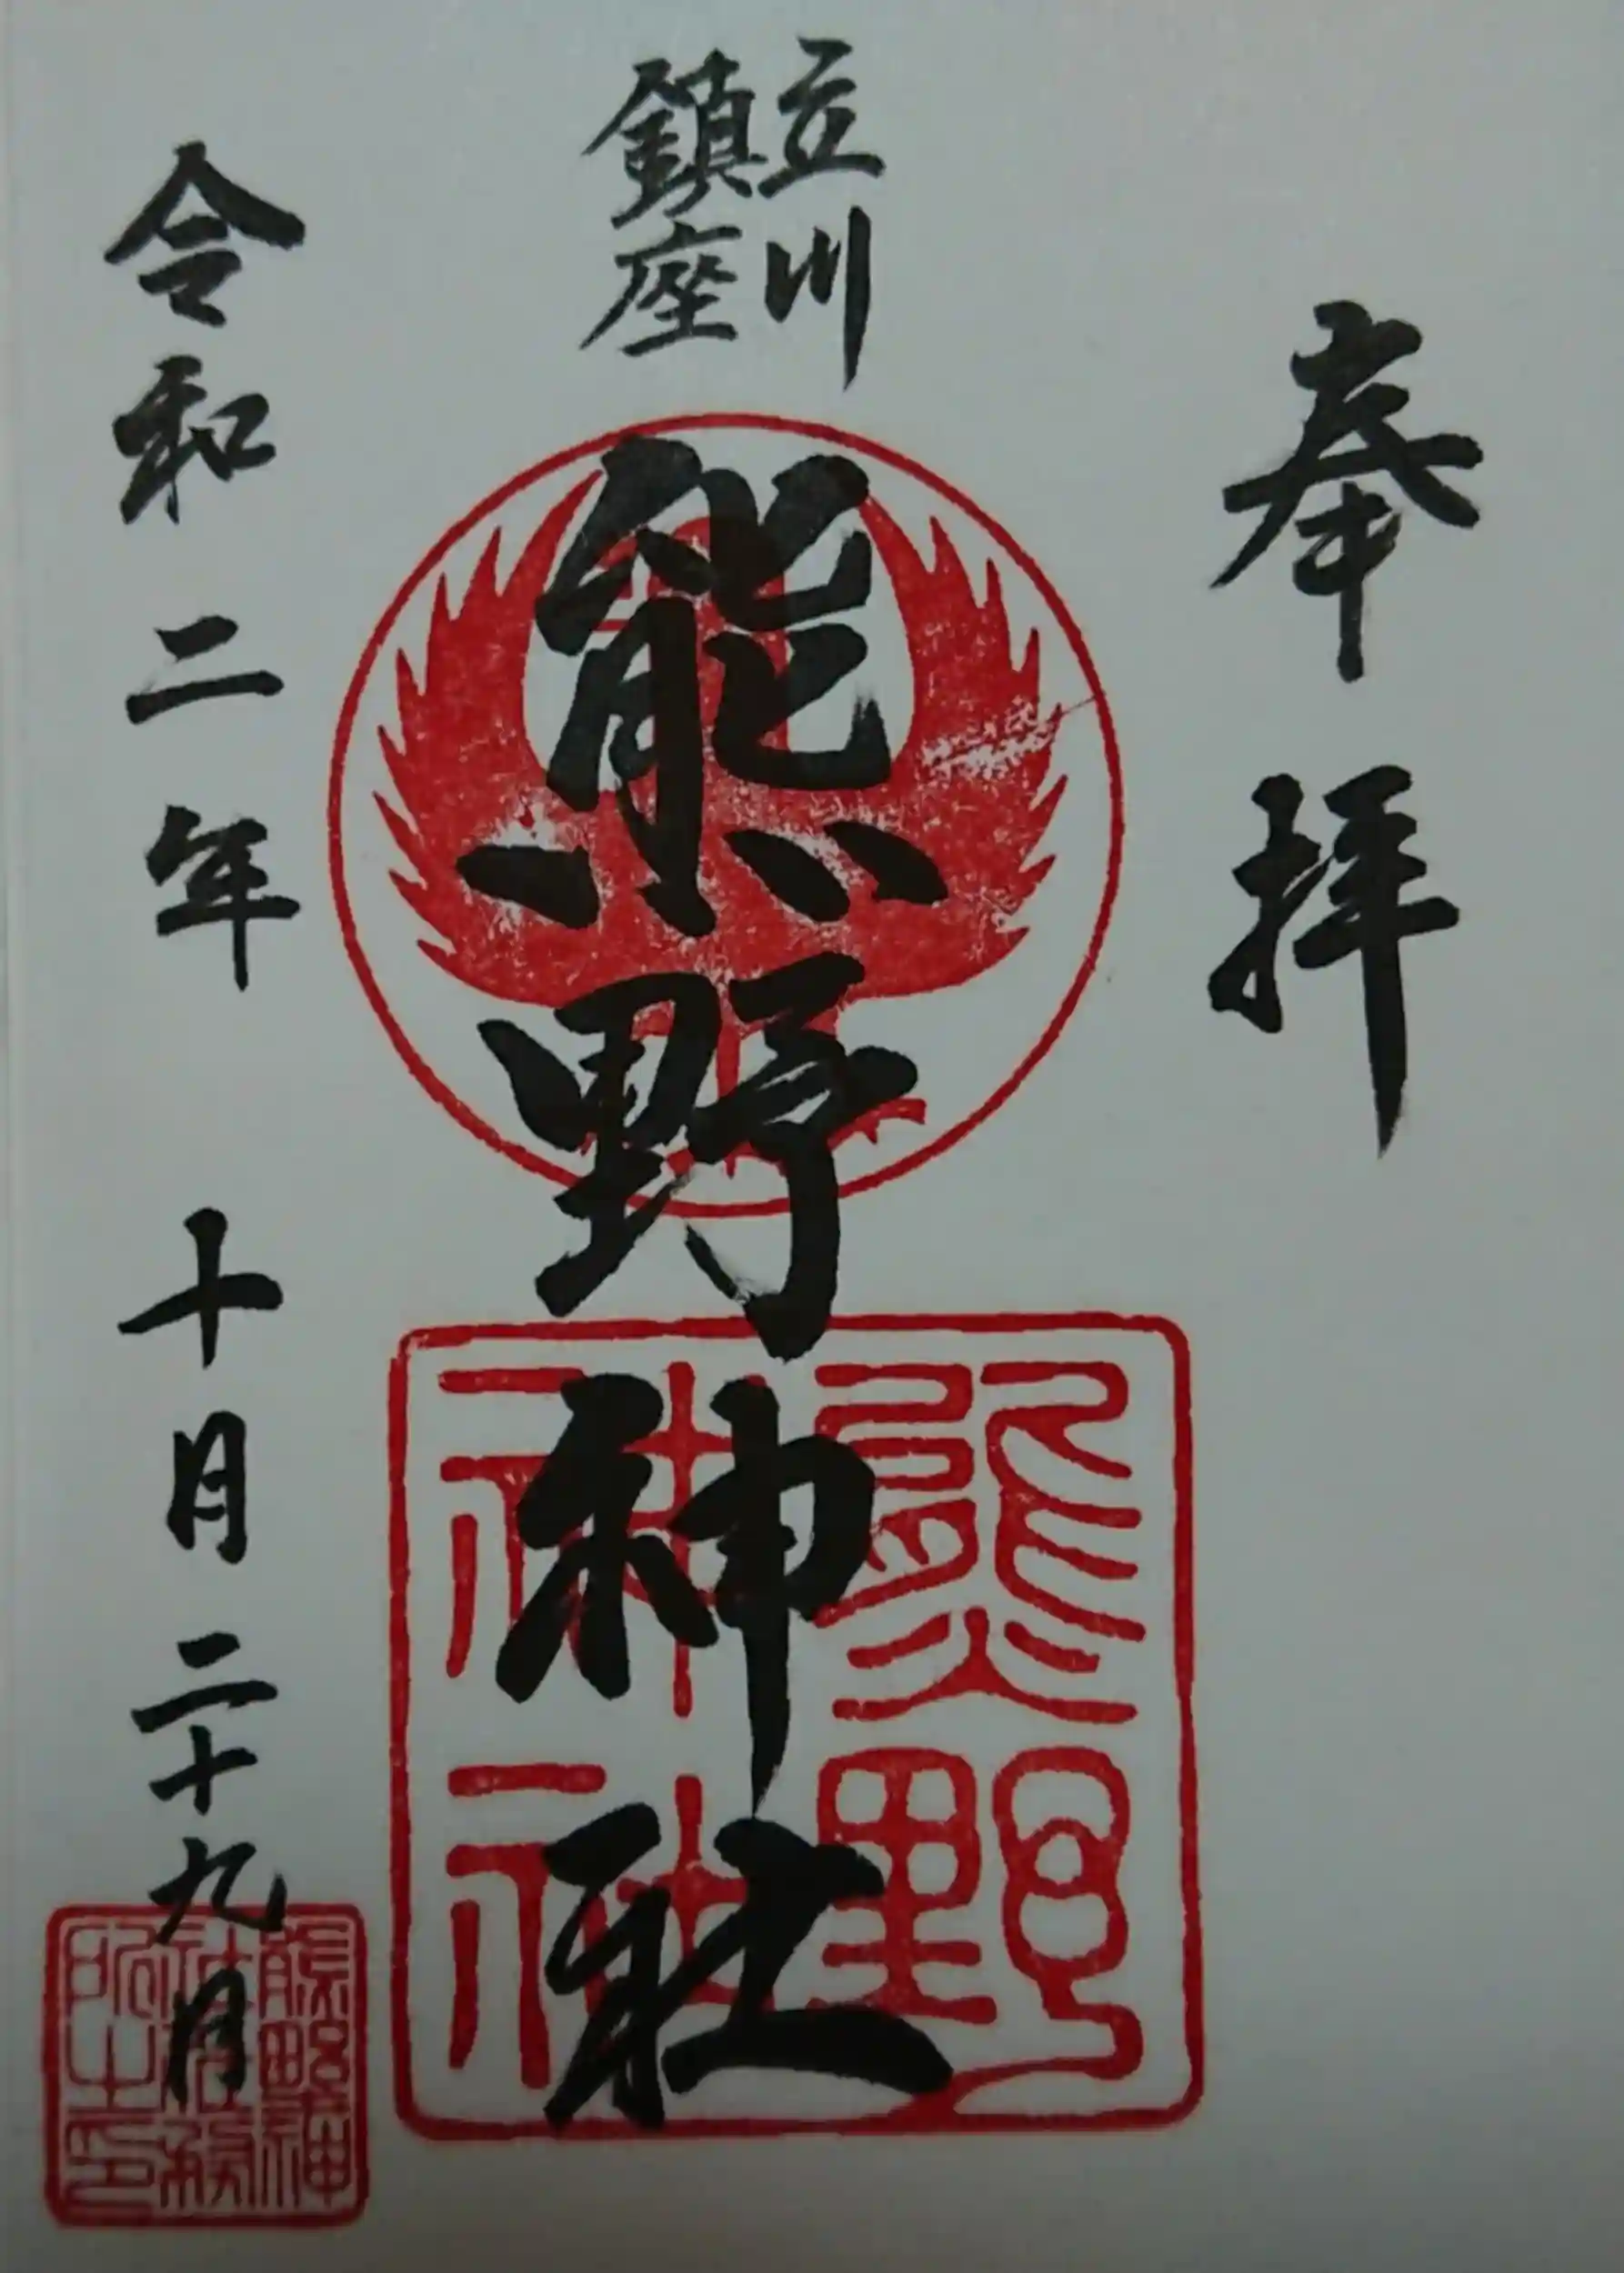 奉拝
立川
鎮座
熊野神社
熊野
神社
令和二年 十月二十九日
熊野神
社社務
所之印